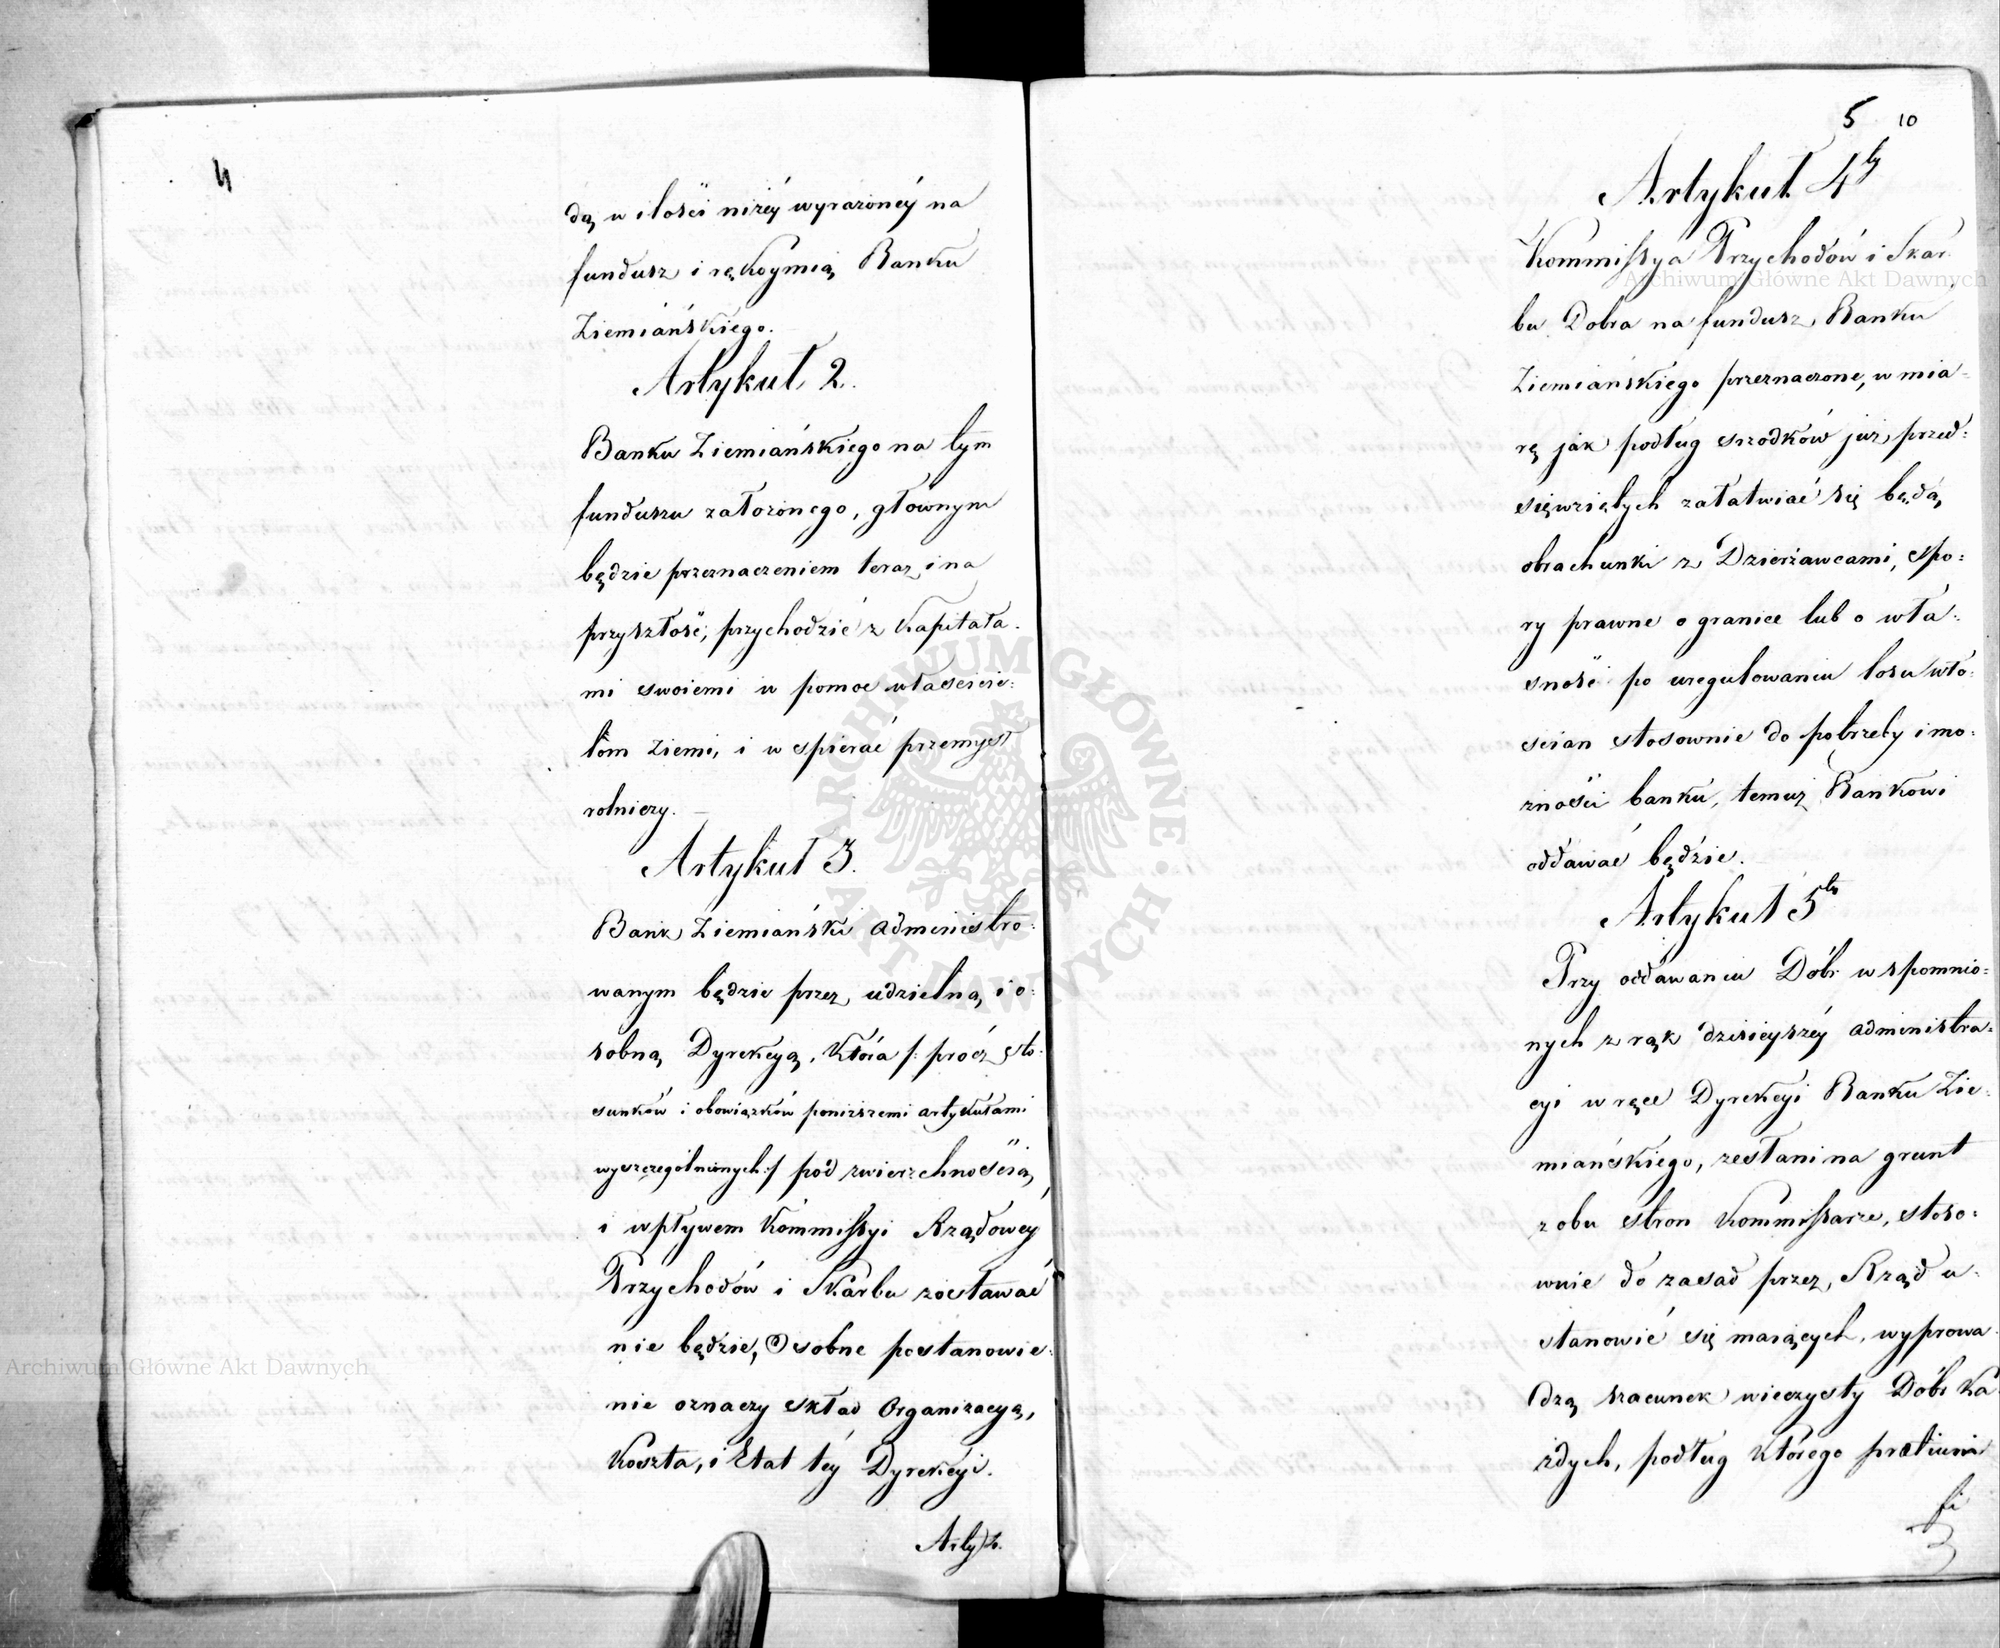 4
dą w ilości niżéy wyrażonéy na
fundusz i rękoymią Banku
Ziemiańskiego.
Artykuł 2.
Banku Ziemiańskiego na tym
funduszu założonego, głównym
będzie przeznaczeniem teraz i na
przyszłość, przychodzić z Kapitała-
mi swoiemi w pomoc właścicie:
lom ziemi, i wspierać przemysł
rolniczy. —
Artykuł 3.
Bank Ziemiański administro:
wanym będzie przez udzielną i o:
sobną Dyrekcyą, która /: prócz sto:
sunków i obowiązków poniższemi artykułami
wyszczególnionych :/ pod zwierzchnością
i wpływem Kommissyi Rządowey
Przychodów i Skarbu zostawać
nie będzie, Osobne postanowie:
nie oznaczy skład Organizacyą,
Koszta, i Etat téy Dyrekcyi.
Artyk.
5 10
Artykuł 4ty
Kommissya Przychodów i Skar
bu Dobra na fundusz Banku
Ziemiańskiego przeznaczone, w mia-
rę jak podług srzodków już przed:
sięwziętych załatwiać się będą
obrachunki z Dzierżawcami, spo:
ry prawne o granice lub o wła:
sność po uregulowaniu losu wło:
scian stosownie do potrzeby i mo:
żności banku, temuż Bankowi
oddawać będzie.
Artykuł 5ty
Przy oddawaniu Dóbr wspomnio:
nych z rąk dzisieyszéy administra:
cyi w ręce Dyrekcyi Banku Zie:
miańskiego, zesłani na grunt
z obu stron Kommissarze, stoso:
wnie do zasad przez Rząd u-
stanowić się maiących, wyprowa
dzą szacunek wieczysty Dóbr Ka
żdych, podług którego prætium
fi
Archiwum Główne Akt Dawnych
Archiwum Główne Akt Dawnych
ARCHIWUM GŁÓWNE AKT DAWNYCH